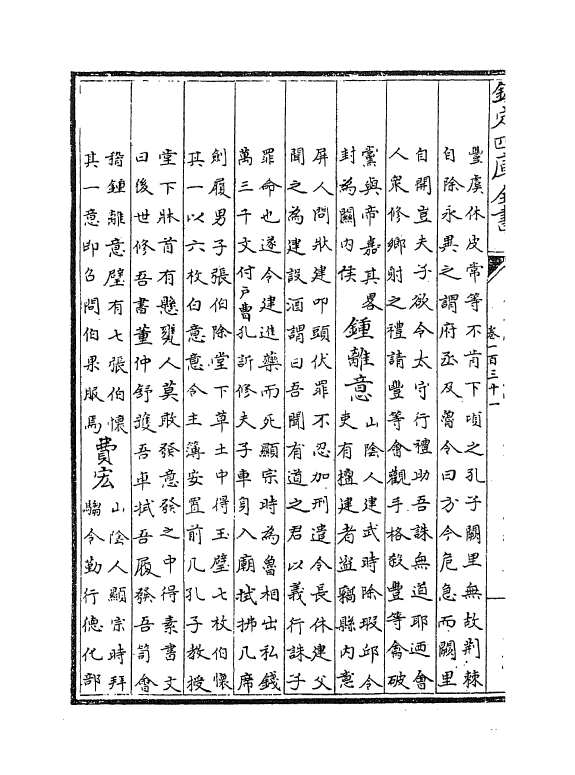 欽定四庫全書
卷一百三十一
豐虞休皮常等不肯下頃之孔子闕里無故荆棘
自除永異之謂府丞及魯令曰方今危急而闕里
自開豈夫子欲令太守行禮助吾誅無道耶廼會
人衆修鄉射之禮請豐等會觀手格殺豐等禽破
黨與帝嘉其畧
封為關内侯
鍾離意
山陰人建武時除瑕邱令
吏有檀建者盜竊縣内意
屏人問狀建叩頭伏罪不忍加刑遣令長休建父
聞之為建設酒謂曰吾聞有道之君以義行誅子
罪命也遂令建進藥而死顯宗時為魯相出私錢
萬三千文付户曹孔訢修夫子車身入廟拭拂几席
劍履男子張伯除堂下草土中得玉璧七枚伯懷
其一以六枚白意意令主簿安置前几孔子教授
堂下牀首有懸甕人莫敢發意發之中得素書文
曰後世修吾書董仲舒護吾車拭吾履發吾笥會
稽鍾離意璧有七張伯懷
其一意即召問伯果服焉
費宏
山陰人顯宗時拜
騶令勤行德化部